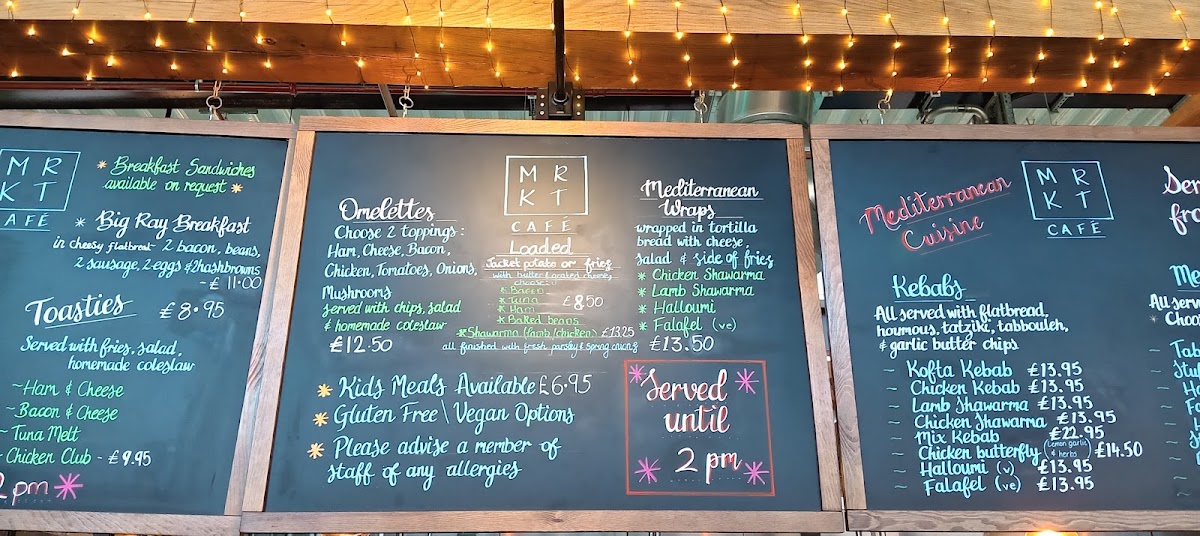 M R
K T
CAFÉ
* Breakfast Sandwiches
available on request *
* Big Ray Breakfast
in cheesy flatbread - 2 bacon, beans,
2 sausage, 2 eggs & 2 hashbrowns
- £11.00
Toasties £8.95
Served with fries, salad,
homemade coleslaw
~ Ham & Cheese
~ Bacon & Cheese
~ Tuna Melt
~ Chicken Club - £9.95
2pm *
Omelettes
Choose 2 toppings:
Ham, Cheese, Bacon,
Chicken, Tomatoes, Onions,
Mushrooms
served with chips, salad
& homemade coleslaw
£12.50
M R
K T
CAFÉ
Loaded
Jacket potato or fries
with butter & grated cheese,
choose:
* Bacon
* Tuna £8.50
* Ham
* Baked beans
* Shawarma (lamb/chicken) £13.25
all finished with fresh parsley & spring onion
Mediterranean
Wraps
wrapped in tortilla
bread with cheese,
salad & side of fries
* Chicken Shawarma
* Lamb Shawarma
* Halloumi
* Falafel (ve)
£13.50
* Kids Meals Available £6.95
* Gluten Free \ Vegan Options
* Please advise a member of
staff of any allergies
Served
until
2 pm
Mediterranean
Cuisine
M R
K T
CAFÉ
Kebabs
All served with flatbread,
houmous, tatziki, tabbouleh,
& garlic butter chips
~ Kofta Kebab £13.95
~ Chicken Kebab £13.95
~ Lamb Shawarma £13.95
~ Chicken Shawarma £13.95
~ Mix Kebab £22.95
~ Chicken butterfly (Lemon garlic & herbs) £14.50
~ Halloumi (v) £13.95
~ Falafel (ve) £13.95